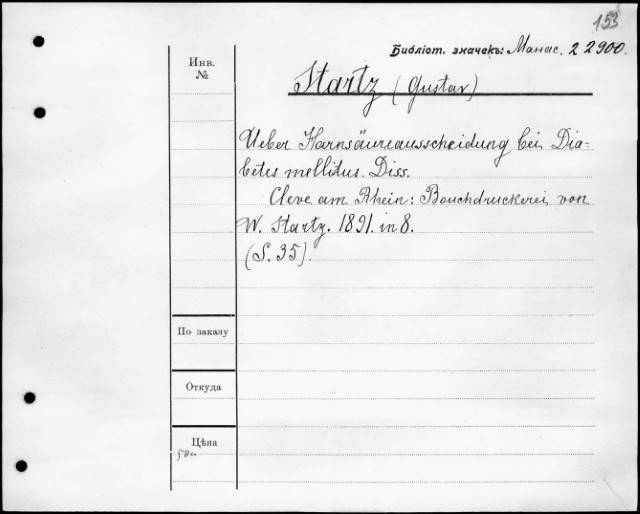 153
Библіот. значекъ: Манас. 22900.
Инв.
№
Startz (Gustav)
Ueber Harnsäureausscheidung bei Dia-
betes mellitus. Diss.
Cleve am Rhein: Bouchdruckerei von
W. Startz. 1891. in 8.
(S. 35).
По заказу
Откуда
Цѣна